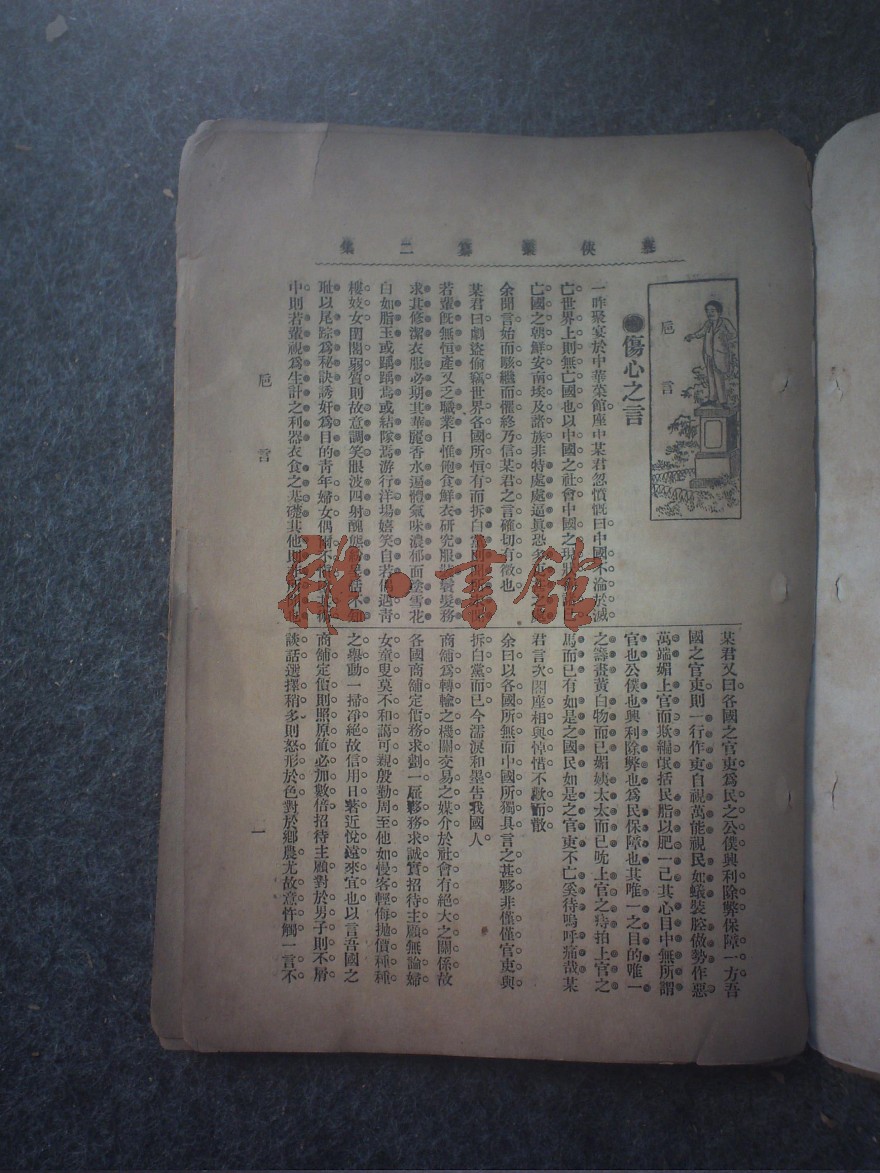 慕俠叢纂二集
巵言
傷心之言
一昨聚宴於中華菜館座中某君忽憤慨曰中國不淪於滅
亡世界上則無亡國也以中國之社會中國之現狀
亡國之朝鮮安南埃及諸族非特處處逼眞恐
余聞言始而駭繼而懼終乃信某君之言確切有徵也
某君曰劇盜偷竊世界各國所恒有而拆白黨則
若輩旣無恒產又乏職業日惟飽食鮮衣硏究服裝鬢髮務
求其修潔衣服必期其華麗香水逼體氣味濃郁面塗雪花
白如脂玉或踽踽焉或結隊焉游行洋塲嬉笑自若偶遇靑
樓妓女閨閣弱質則故意調笑眼波四射醜態
耻以尾踪爲秘訣誘奸爲目的靑年婦女偶爾不
中則若輩視爲生計之利器衣食之基礎其他則
某君又曰各國之官吏爲民之公僕興利除弊保障一方吾
國之官吏則一行作吏自視萬能視民如蟻裝腔做勢作惡
萬端媚上官而欺編氓括民脂以肥一己其心目中無所謂
官也公僕也興利除弊也爲民保障也其唯一之目的唯一
之籌畫黃白物而已媚姨太太而已吮上官之痔拍上官之
馬而已有如是之國民如是之官吏不亡奚待嗚呼痛哉某
君言次閤座相與悼惜不歡而散
余曰以各國所無而中國所獨具言之甚夥非僅僅官吏與
拆白黨而已今濡淚和墨告我國人
商舖爲轉輸之機關交易之媒介於社會有絕大之關係故
各國商舖定價務求劃一厥夥務求誠實招待主顧無論婦
女童叟莫不和藹可親殷勤周至他如慢客輕侮拋價種種
之舉動一掃净絕故信用日著近悅遠來宜也以言吾國之
商舖定價則照原値必加數倍招待主顧對於男子則不屑
談話選擇稍多則怒形於色對於鄉農尤故意忤觸一言不
巵言
一
雅·書館